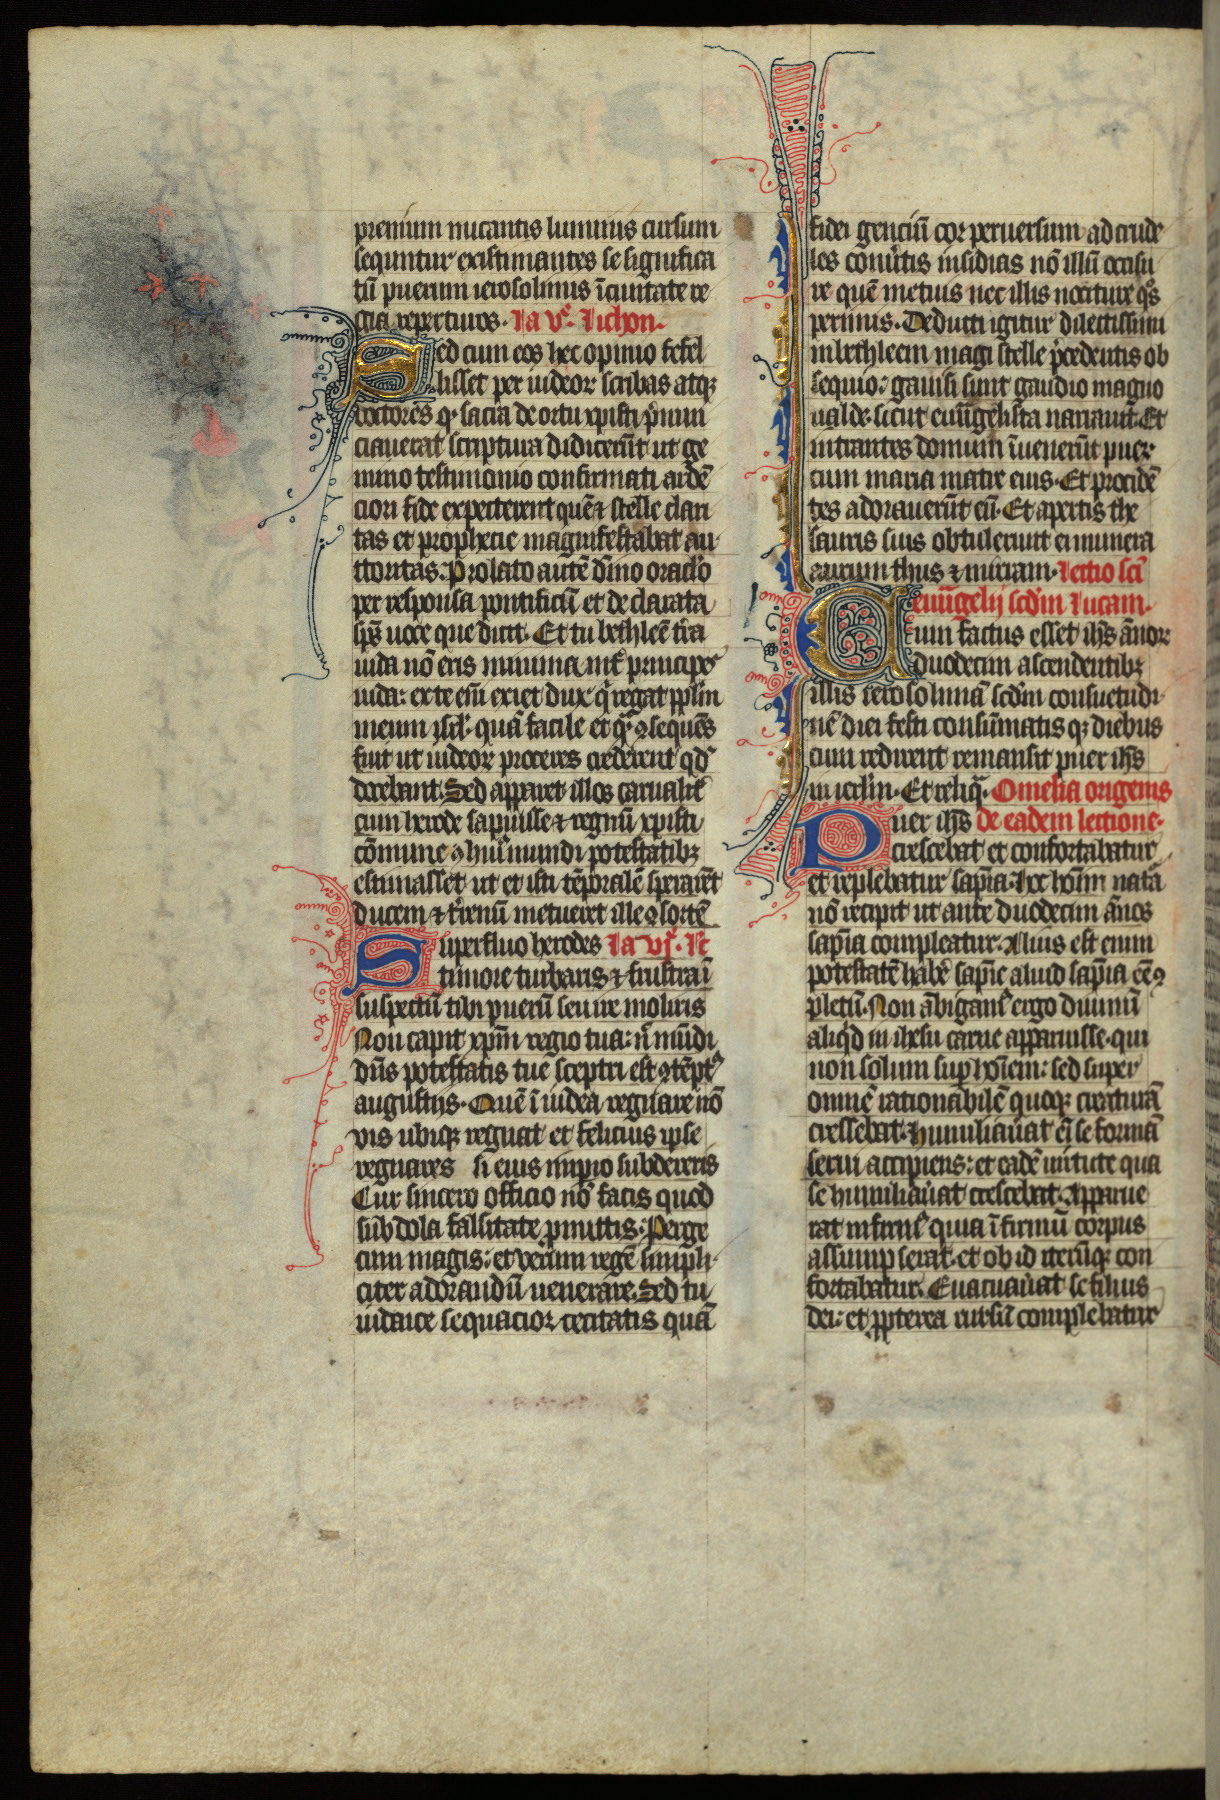 premium micantis luminis cursum
sequntur existimantes se significa
tū puerum ierosolimis ī ciuitate re
gia reperturos. Ja vͦ. Jichon.
Sed cum eos hec opinio fefel
lisset per iudeoꝝ scribas atqꝫ
doctores qͥ sacra de ortu xpisti p̄nun
ciauerat scriptura didicerūt ut ge
mino testimonio confirmati ardē
ciori fide expeterent quē ⁊ stelle clari
tas et prophecie magnifestabat au
ctoritas. Prolato autē dīno oraclo
per responsa pontificū et declarata
sp̄s uoce que dicit. Et tu bethleē tr̄a
iuda nō eris minima int̄ principes
iuda: ex te em̄ exiet dux qͥ regat pplm̄
meum isrl̄. quā facile et qͣ ꝯsequēs
fuit ut iudeoꝝ proceres crederent qd̄
docebant. Sed apparet illos carnalit̄
cum herode sapuisse ⁊ regnū xpisti
cōmune ꝯ huiꝰ mundi potestatibꝫ
estimasset ut et isti tēporalē sperarēt
ducem ⁊ tirēnū metueret ille ꝯsortē
Superfluo herodes Ja vͦ. Nc̄
timore turbaris ⁊ frustra ī
suspectū tibi puerū seuire moliris
Non capit xpm̄ regio tua: n̄ mūdi
dn̄s potestatis tue sceptri est ꝯtēptꝰ
augustijs. Quē ī iudea regnare nō
vis ubiqꝫ regnat et felicius ipse
regnares si eius impio subdereris
Cur sincero officio nō facis quod
subdola falsitate ꝓmittis. Perge
cum magis: et verum regē simpli
citer adorandū uenerare. Sed tu
iudaice sequacior cecitatis quā
fidei genciū cor peruersum ad crude
les conūtis insidias nō illū occisu
re quē metuis nec illis nociture qͦs
perimis. Deducti igitur dilectissimi
in bethleem magi stelle p̄cedentis ob
sequio: gauisi sunt gaudio magno
ualde. sicut euūgelista narrauit. Et
intrantes domum īuenerūt pueꝝ
cum maria matre eius. Et procidē
tes adorauerūt eū. Et apertis the
sauris suis obtulerunt ei munera
aurum thus ⁊ mirram. Lectio sci
euūgelij scdm̄ Lucam.
Cum factus esset ih̄s ānoꝝ
duodecim ascendentibꝫ
illis ierosolimā scdm̄ consuetudi
nē diei festi consūmatis qꝫ diebus
cum redirent remansit puer ih̄s
in ierl̄m. Et reliqͣ. Omelia origenis
Puer ih̄s de eadem lectione.
crescebat et confortabatur
et replebatur sapīa. Hec hoīm natā
nō recipit ut ante duodecim ānos
sapīa compleatur. Aliud est enim
potestatē habē sapīe aliud sapīa eē ꝯ
pletū. Non ābiganꝰ ergo diuinū
aliqͥd in ihesu carne apparuisse. qui
non solum sup̄ hoīem: sed super
omnē rationabilē quoqꝫ creaturā
cressebat. Humiliauāt eī se formā
serui accipiens: et eadē uirtute qua
se humiliauāt crescebat. Apparue
rat infirmꝰ quia īfirmū corpus
assumpserat. et ob id iterūqꝫ con
fortabatur. Euacuauāt se filius
dei: et ꝓpterea rursū complebatur